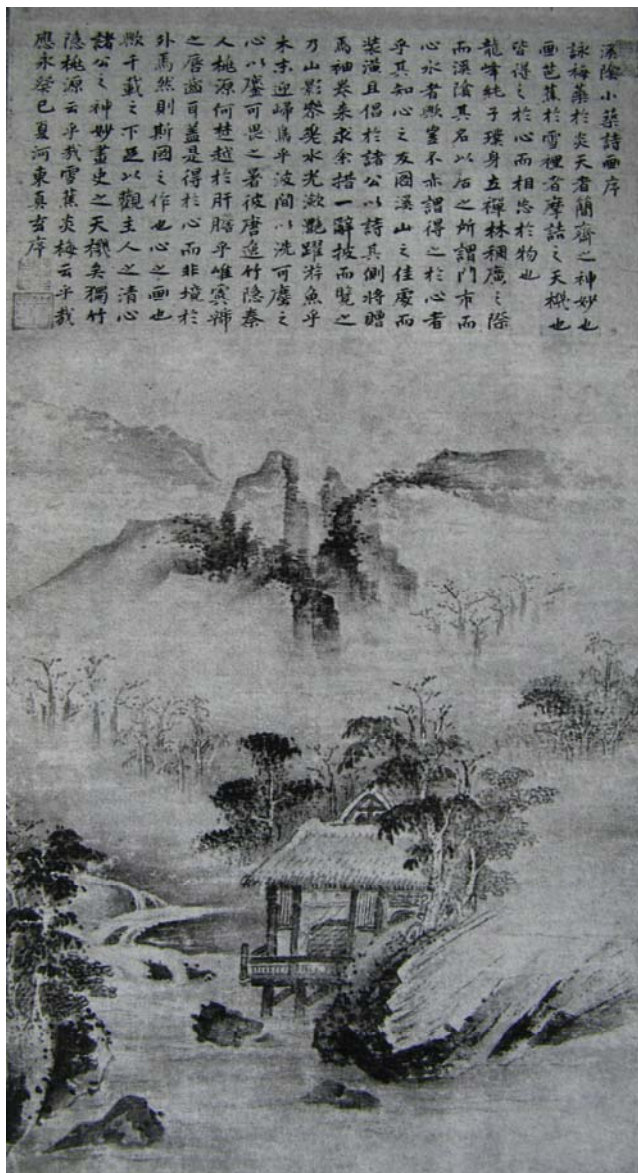 溪陰小築詩画序
詠梅蘂於炎天者簡齋之神妙也
画芭蕉於雪裡者摩詰之天機也
皆得之於心而相忘於物也
龍峰純子璞身立禪林稠廣之際
而溪陰其名以居之所謂門市而
心水者歟豈不亦謂得之於心者
乎其知心之友圖溪山之佳處而
装潢且倡於諸公以詩其側将贈
焉袖巻来求余措一辭披而覧之
乃山影參差水光瀲艶躍游魚乎
木末迎歸鳥乎波間以洗可塵之
心以塵可畏之暑彼唐進竹隐秦
人桃源何楚越於肝膽乎雖
之唇齒耳盖是得於心而非境於
外焉然則斯圖之作也心之画也
歟千載之下足以觀主人之清心
諸公之神妙畫史之天機矣獨竹
隐桃源云乎哉雪蕉炎梅云乎哉
應永癸巳夏河東真玄序